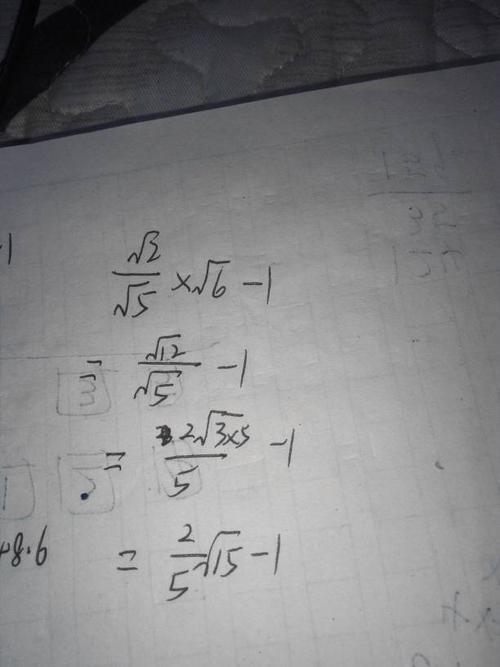 -1
√2/√5 × √6 - 1
= √12/√5 - 1
= 2√3×5/5 - 1
+8.6
= 2/5√15 - 1